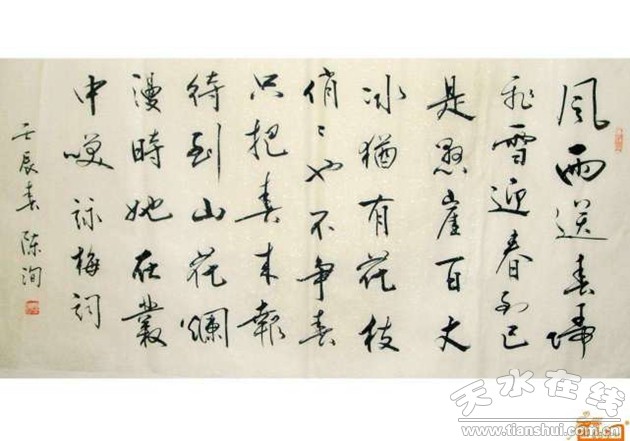 風雨送春歸
飛雪迎春到已
是懸崖百丈
冰猶有花枝
俏〻也不爭春
只把春来報
待到山花爛
漫時她在叢
中咲 詠梅詞
壬辰春 陈洵
天水在线
www.tianshui.com.cn